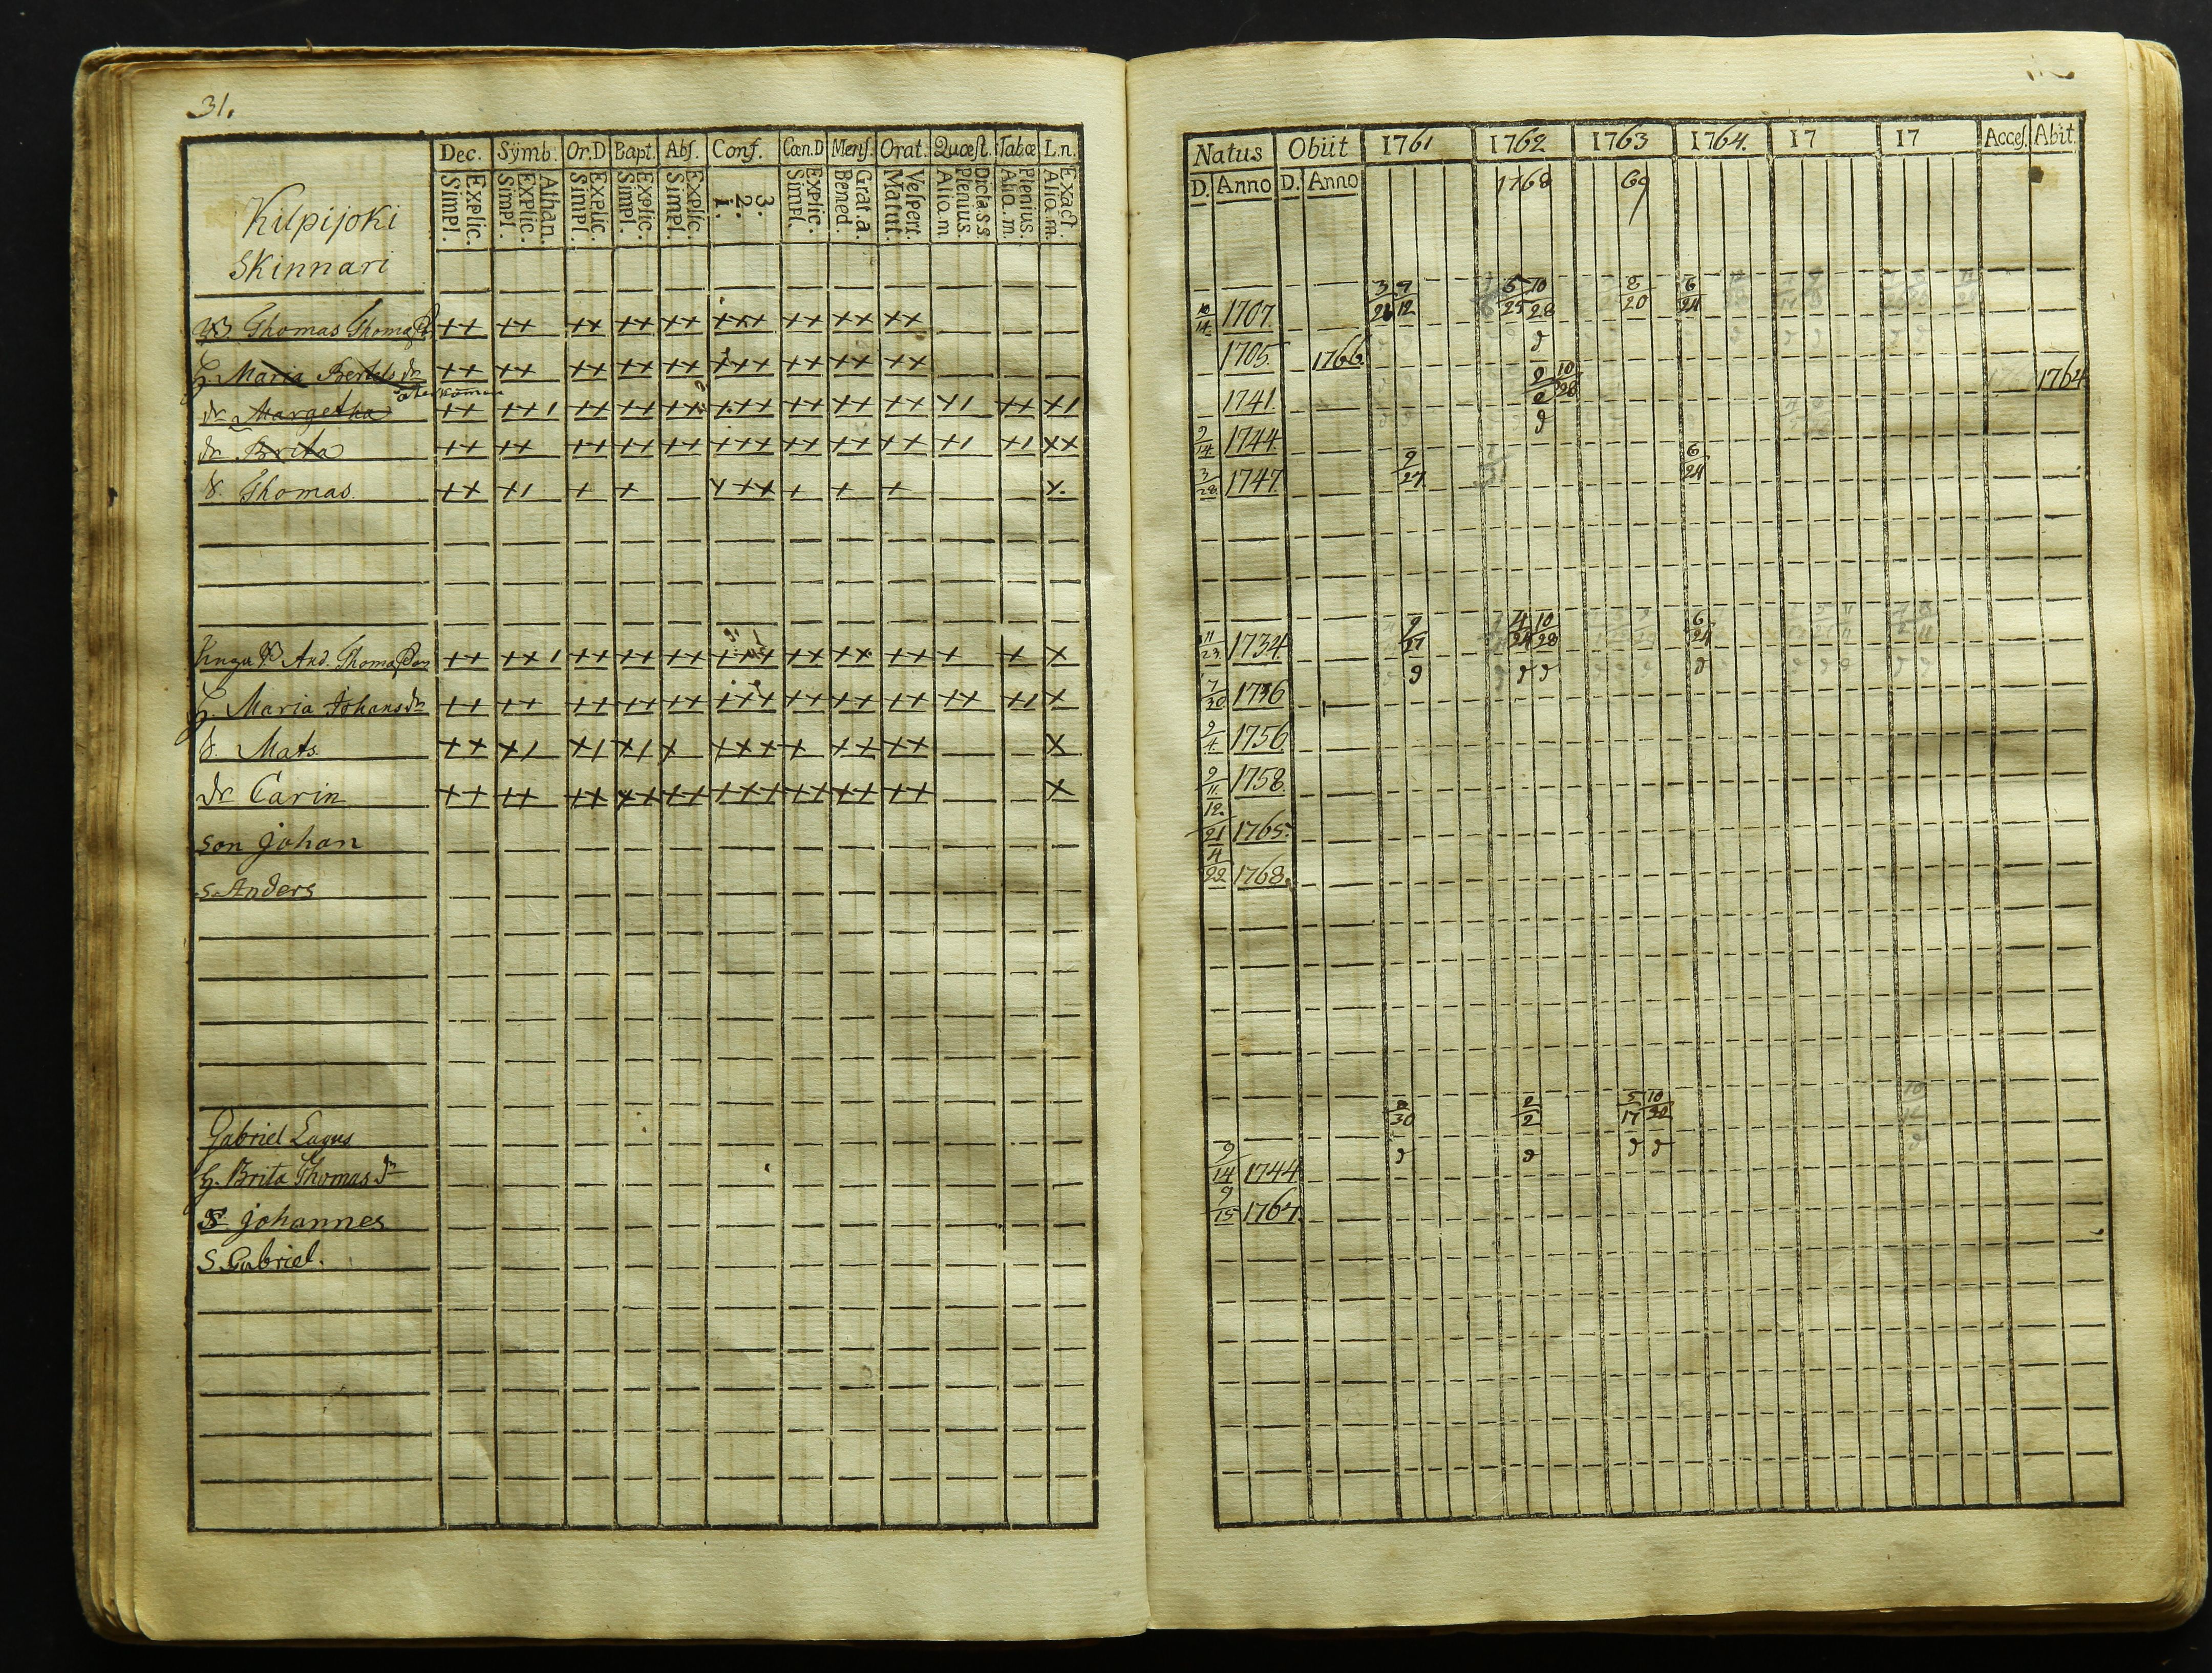 31.
Kilpijoki
Skinnari
Dec. Symb. Or.D Bapt. Abs. Conf. Cœn.D Mens. Orat. Quæst. Tab.œ L.n.
Explic. Simpl. Athan. Explic. Simpl. Explic. Simpl. Explic. Simpl. Explic. Simpl. 3. 2. 1. Explic. Simpl. Grat.a. Bened. Vespert. Matut. Dicta.s.s. Plenius. Aliq.m. Plenius. Aliq.m. Exact. Aliq.m.
Thomas
h. Maria Bertels dr
återkommen
dr Margetha
dr Brita
s. Thomas
Unga And. Thomasson
h. Maria Johans dr
s. Mats
dr Carin
son Johan
s. Anders
Gabriel Lagus
h. Brita Thomas dr
s Johannes
s Gabriel.
Natus Obiit 1761 1762 1763 1764. 17 17 Acces. Abit.
D. Anno D. Anno 1768 69
10/14 1707 3/21 9/12 5/25 10/28 8/20 6/24
1705 1766
1741 10/28 1764
9/14 1744
3/28 1747 9/27 6/24
11/23 1734 9/27 4/24 10/28 6/24
7/20 1736
9/4 1756
9/11 1758
12/21 1765
4/22 1768
8/30 2/2 5/17 10/30
9/14 1744
9/15 1767